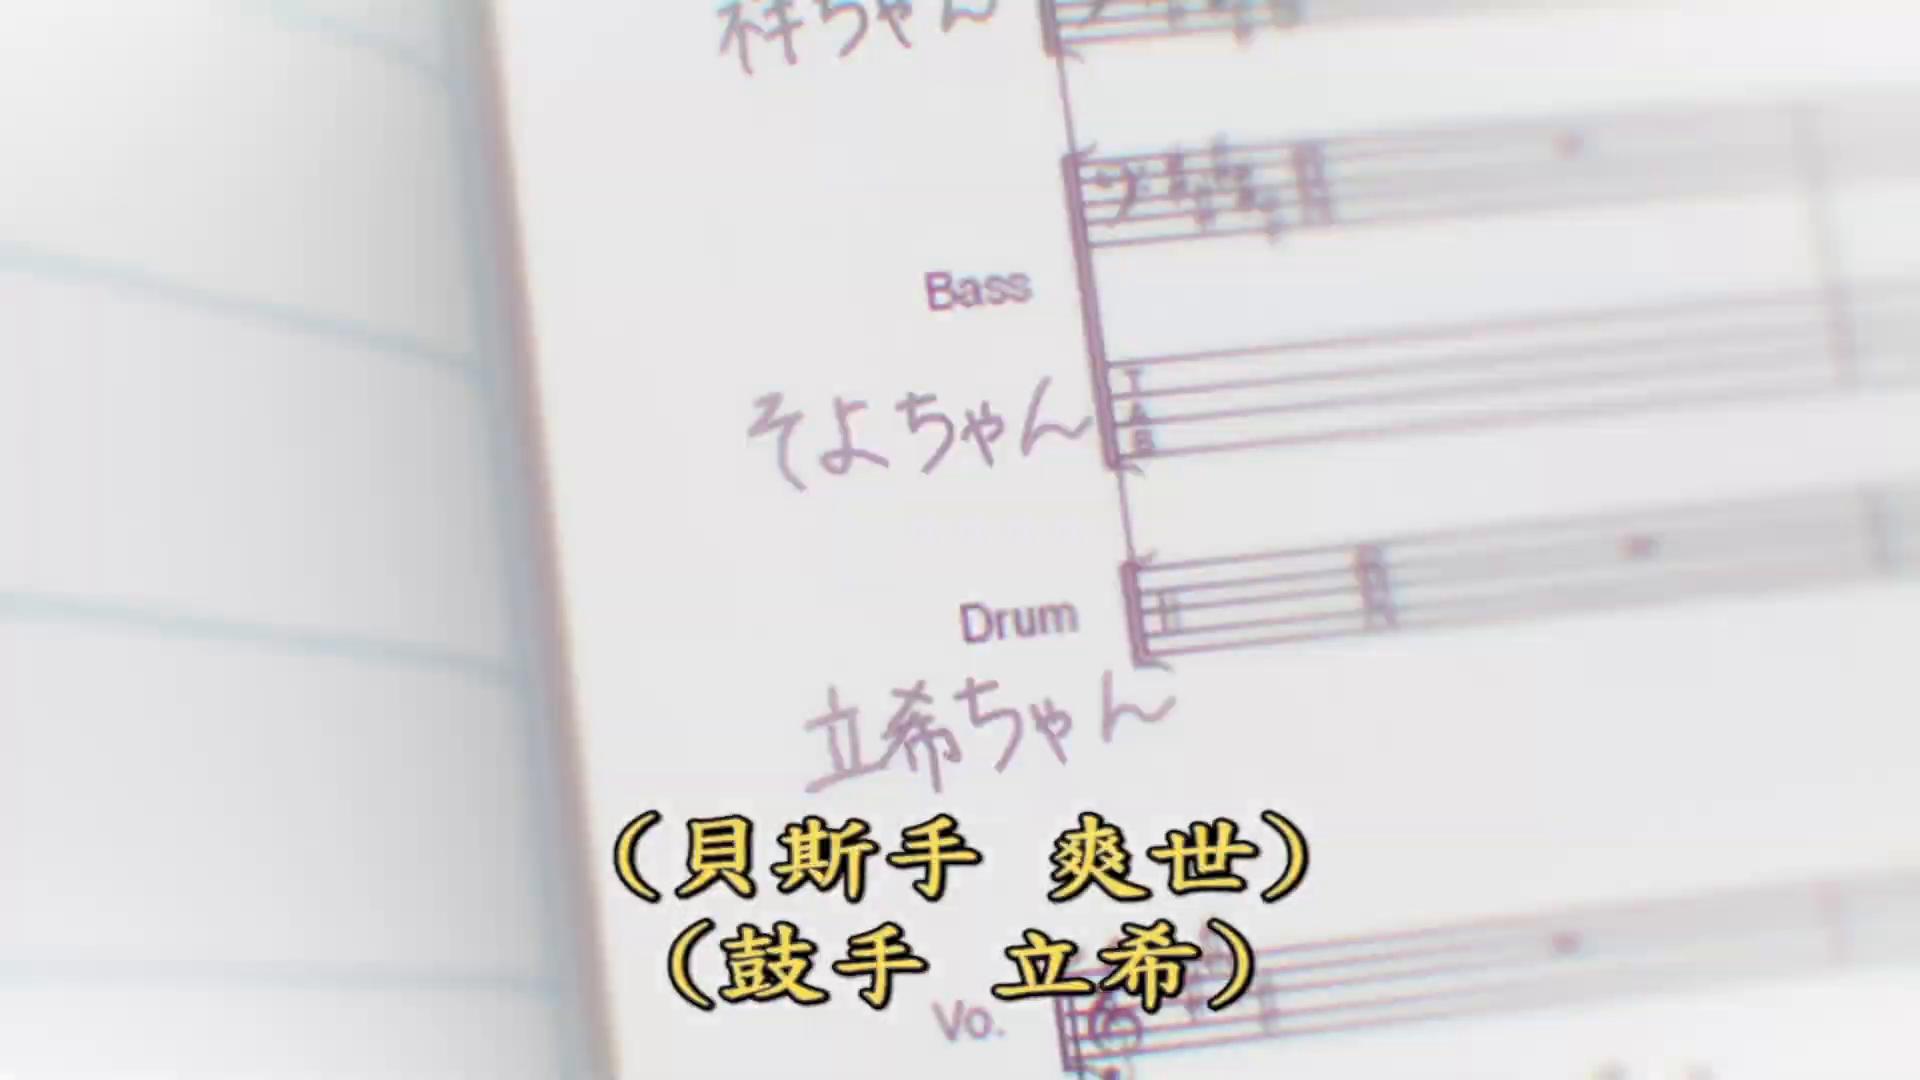 祥ちゃん
Bass
TAB
そよちゃん
Drum
立希ちゃん
(貝斯手 爽世)
(鼓手 立希)
Vo.